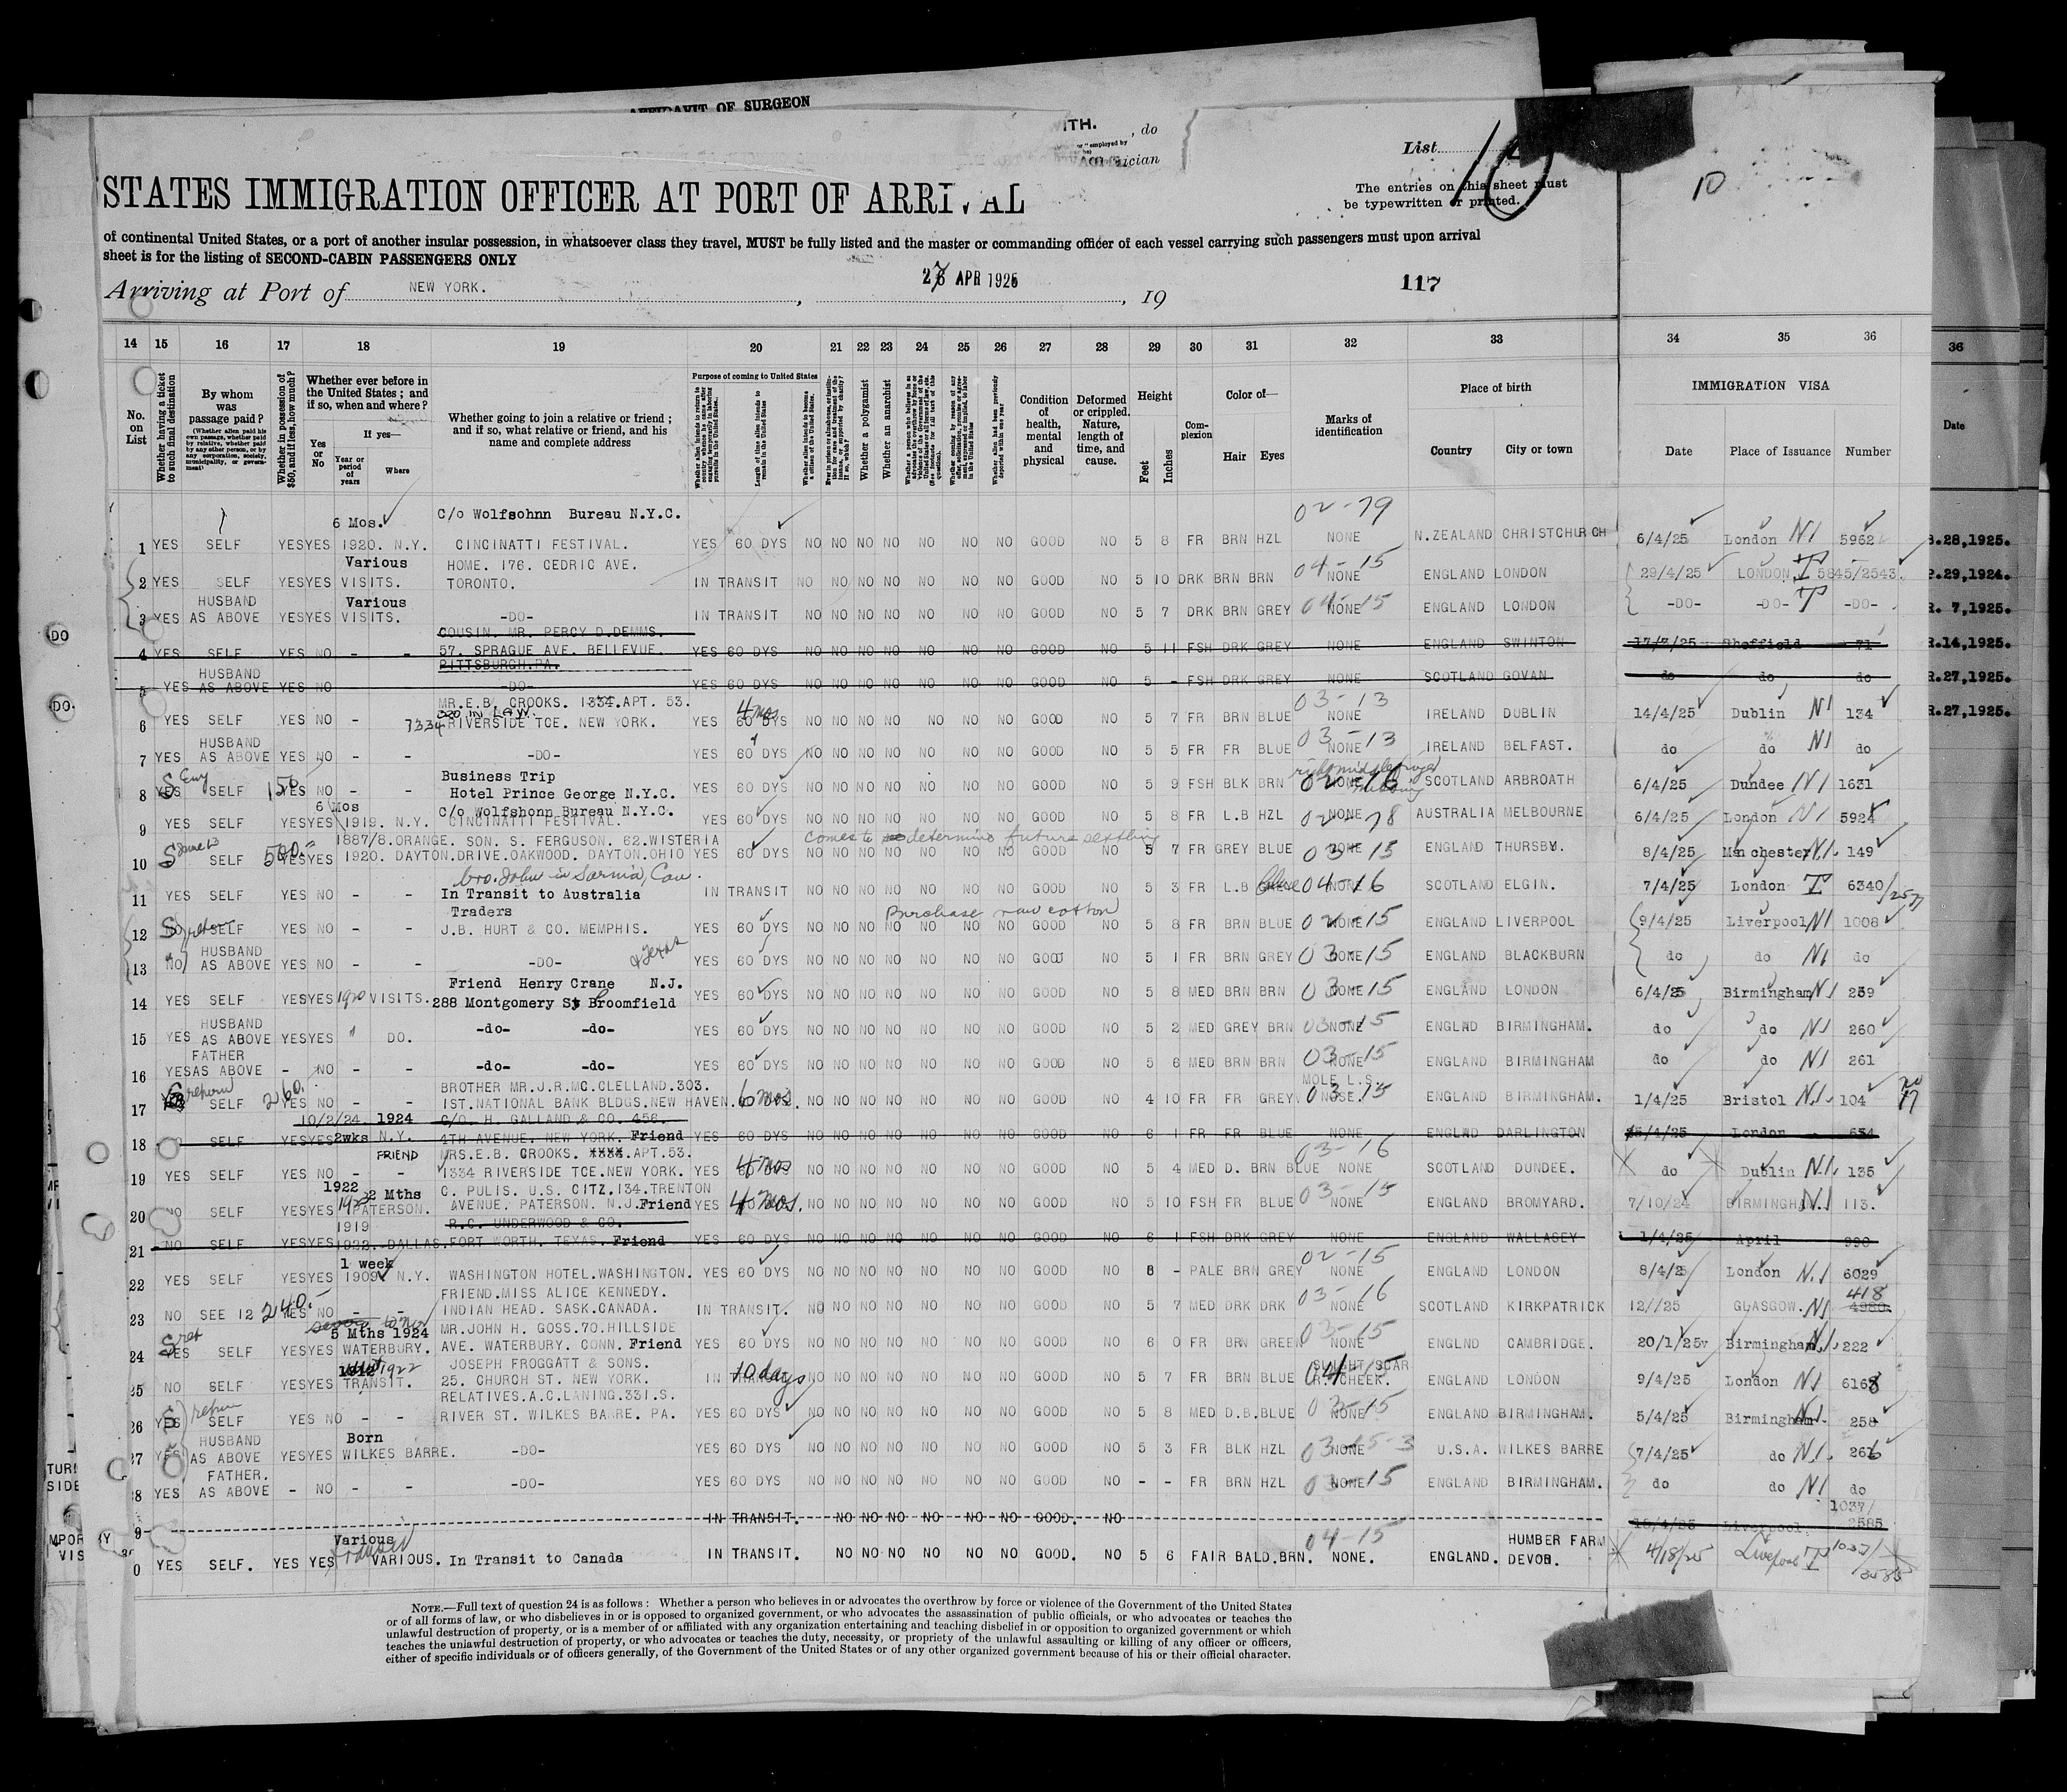 AFFIDAVIT OF SURGEON
ITH.
, do
List
10
10
The entries on this sheet must
be typewritten or printed.
STATES IMMIGRATION OFFICER AT PORT OF ARRIVAL
of continental United States, or a port of another insular possession, in whatsoever class they travel, MUST be fully listed and the master or commanding officer of each vessel carrying such passengers must upon arrival
sheet is for the listing of SECOND-CABIN PASSENGERS ONLY
Arriving at Port of NEW YORK. , 27 APR 1925 , 19
117
14 15 16 17 18 19 20 21 22 23 24 25 26 27 28 29 30 31 32 33 34 35 36
No. on List
Whether having a ticket to such final destination
By whom was passage paid?
Whether in possession of $50, and if less, how much?
Whether ever before in the United States; and if so, when and where?
Yes or No
If yes—
Year or period of years
Where
Whether going to join a relative or friend; and if so, what relative or friend, and his name and complete address
Purpose of coming to United States
Whether a polygamist
Whether an anarchist
Condition of health, mental and physical
Deformed or crippled. Nature, length of time, and cause.
Height
Feet
Inches
Complexion
Color of—
Hair
Eyes
Marks of identification
Place of birth
Country
City or town
IMMIGRATION VISA
Date
Place of Issuance
Number
36
Date
6 Mos. C/o Wolfsohnn Bureau N.Y.C. 02-79
1 YES SELF YES YES 1920. N.Y. CINCINATTI FESTIVAL. YES 60 DYS NO NO NO NO NO NO NO GOOD NO 5 8 FR BRN HZL NONE N.ZEALAND CHRISTCHURCH 6/4/25 London NI 5962
Various HOME. 176. CEDRIC AVE. 04-15
2 YES SELF YES YES VISITS. TORONTO. IN TRANSIT NO NO NO NO NO NO NO GOOD NO 5 10 DRK BRN BRN NONE ENGLAND LONDON 29/4/25 LONDON T 5845/2543
HUSBAND Various
3 YES AS ABOVE YES YES VISITS. -DO- IN TRANSIT NO NO NO NO NO NO NO GOOD NO 5 7 DRK BRN GREY 04-15 NONE ENGLAND LONDON -DO- -DO- T -DO-
COUSIN. MR. PERCY D.DEMMS.
4 YES SELF YES NO - - 57. SPRAGUE AVE. BELLEVUE. YES 60 DYS NO NO NO NO NO NO NO GOOD NO 5 11 FSH DRK GREY NONE ENGLAND SWINTON 17/7/25 Sheffield 71
PITTSBURGH.PA.
HUSBAND
5 YES AS ABOVE YES NO -DO- YES 60 DYS NO NO NO NO NO NO NO GOOD NO 5 - FSH DRK GREY NONE SCOTLAND GOVAN do do do
MR.E.B. CROOKS. 1334.APT. 53. 4 mos 03-13
6 YES SELF YES NO - 7334 RIVERSIDE TCE. NEW YORK. YES 60 DYS NO NO NO NO NO NO NO GOOD NO 5 7 FR BRN BLUE NONE IRELAND DUBLIN 14/4/25 Dublin NI 134
HUSBAND
7 YES AS ABOVE YES NO - - -DO- YES 60 DYS NO NO NO NO NO NO NO GOOD NO 5 5 FR FR BLUE 03-13 NONE IRELAND BELFAST. do do NI do
Business Trip
8 YES SELF 150 YES NO - - Hotel Prince George N.Y.C. YES 60 DYS NO NO NO NO NO NO NO GOOD NO 5 9 FSH BLK BRN 02-16 NONE SCOTLAND ARBROATH 6/4/25 Dundee NI 1631
6 Mos C/o Wolfshonn Bureau N.Y.C.
9 YES SELF YES YES 1919. N.Y. CINCINATTI FESTIVAL. YES 60 DYS NO NO NO NO NO NO NO GOOD NO 5 8 FR L.B HZL 02-78 NONE AUSTRALIA MELBOURNE 6/4/25 London NI 5924
1887/8.ORANGE. SON. S. FERGUSON. 62.WISTERIA comes to determine future
10 SELF 500 YES YES 1920. DAYTON. DRIVE.OAKWOOD. DAYTON.OHIO YES 60 DYS NO NO NO NO NO NO NO GOOD NO 5 7 FR GREY BLUE 03-15 NONE ENGLAND THURSBY. 8/4/25 Manchester NI. 149
bro. John in Sarnia, Can.
11 YES SELF YES NO - - In Transit to Australia IN TRANSIT NO NO NO NO NO NO NO GOOD NO 5 3 FR L.B blue 04-16 NONE SCOTLAND ELGIN. 7/4/25 London T 6340/2577
Traders Purchase raw cotton
12 NO SELF YES NO - - J.B. HURT & CO. MEMPHIS. YES 60 DYS NO NO NO NO NO NO NO GOOD NO 5 8 FR BRN BLUE 02-15 NONE ENGLAND LIVERPOOL 9/4/25 Liverpool NI 1008
HUSBAND & Texas
13 NO AS ABOVE YES NO - - -DO- YES 60 DYS NO NO NO NO NO NO NO GOOD NO 5 1 FR BRN GREY 03-15 NONE ENGLAND BLACKBURN do do NI do
Friend Henry Crane N.J.
14 YES SELF YES YES 1920 VISITS. 288 Montgomery St Broomfield YES 60 DYS NO NO NO NO NO NO NO GOOD NO 5 8 MED BRN BRN 03-15 NONE ENGLAND LONDON 6/4/25 Birmingham NI 259
HUSBAND
15 YES AS ABOVE YES YES " DO. -do- -do- YES 60 DYS NO NO NO NO NO NO NO GOOD NO 5 2 MED GREY BRN 03-15 NONE ENGLND BIRMINGHAM. do do NI 260
FATHER
16 YES AS ABOVE - NO - - -do- -do- YES 60 DYS NO NO NO NO NO NO NO GOOD NO 5 6 MED BRN BRN 03-15 NONE ENGLAND BIRMINGHAM do do NI 261
BROTHER MR.J.R.MC.CLELLAND.303. MOLE L.S.
17 SELF 260. YES NO - - 1ST.NATIONAL BANK BLDGS.NEW HAVEN. 6 mos. NO NO NO NO NO NO NO GOOD NO 4 10 FR FR GREY 03-15 NOSE. ENGLAND BIRMINGHAM. 1/4/25 Bristol N.I. 104
10/2/24. 1924 C/O. H. GALLAND & CO. 456.
18 NO SELF YES YES 2wks N.Y. 4TH AVENUE. NEW YORK. Friend YES 60 DYS NO NO NO NO NO NO NO GOOD NO 6 1 FR FR BLUE NONE ENGLND DARLINGTON 5/4/25 London - 654
FRIEND MRS.E.B. CROOKS. XXXX.APT.53. 03-16
19 YES SELF YES NO - - 1334 RIVERSIDE TCE.NEW YORK. YES 4 mos NO NO NO NO NO NO NO GOOD NO 5 4 MED D. BRN BLUE NONE SCOTLAND DUNDEE. do Dublin N.I. 135
1922 2 Mths C. PULIS. U.S. CITZ.134.TRENTON
20 NO SELF YES YES 1922 PATERSON. AVENUE. PATERSON. N.J. Friend YES 4 mos. NO NO NO NO NO NO NO GOOD NO 5 10 FSH FR BLUE 03-15 NONE ENGLAND BROMYARD. 7/10/24 BIRMINGHAM N.I. 113.
1919 R.C. UNDERWOOD & CO.
21 NO SELF YES YES 1922. DALLAS, FORT WORTH. TEXAS. Friend YES 60 DYS NO NO NO NO NO NO NO GOOD NO 6 1 FSH DRK GREY NONE ENGLAND WALLASEY 1/4/25 April 990
1 week 02-15
22 YES SELF YES YES 1909 N.Y. WASHINGTON HOTEL.WASHINGTON. YES 60 DYS NO NO NO NO NO NO NO GOOD NO 6 - PALE BRN GREY NONE ENGLAND LONDON 8/4/2 London N.I 6029
FRIEND.MISS ALICE KENNEDY. 03-16 418
23 NO SEE 12 240.- YES NO - - INDIAN HEAD. SASK.CANADA. IN TRANSIT. NO NO NO NO NO NO NO GOOD NO 5 7 MED DRK DRK NONE SCOTLAND KIRKPATRICK 12//25 GLASGOW. NI 4980.
5 Mths 1924 MR.JOHN H. GOSS.70.HILLSIDE 03-15
24 YES SELF YES YES WATERBURY. AVE. WATERBURY. CONN. Friend YES 60 DYS NO NO NO NO NO NO NO GOOD NO 6 0 FR BRN GREEN NONE ENGLND CAMBRIDGE. 20/1/25v Birmingham N.I. 222
1912 1922 JOSEPH FROGGATT & SONS. SLIGHT SCAR
25 NO SELF YES YES TRANSIT. 25. CHURCH ST. NEW YORK. IN 10 days NO NO NO NO NO NO NO GOOD NO 5 7 FR BRN BLUE 04-15 R. CHEEK. ENGLAND LONDON 9/4/25 London NI 6168
RELATIVES.A.C.LANING.331.S.
26 YES SELF YES NO - - RIVER ST. WILKES BARRE. PA. YES 60 DYS NO NO NO NO NO NO NO GOOD NO 5 8 MED D.B.BLUE 03-15 NONE ENGLAND BIRMINGHAM. 5/4/25 Birmingham NI. 258
HUSBAND Born
27 YES AS ABOVE YES YES WILKES BARRE. -DO- YES 60 DYS NO NO NO NO NO NO NO GOOD NO 5 3 FR BLK HZL 03-15-3 NONE U.S.A. WILKES BARRE 7/4/25 do N.I. 266
FATHER.
8 YES AS ABOVE - NO - - -DO- YES 60 DYS NO NO NO NO NO NO NO GOOD NO - - FR BRN HZL 03-15 NONE ENGLAND BIRMINGHAM. do do NI do
9 IN TRANSIT. NO NO NO NO NO NO GOOD. NO 18/4/25 Liverpool. 1037/2585
Various transit 04-15 HUMBER FARM
0 YES SELF. YES YES VARIOUS. In Transit to Canada IN TRANSIT. NO NO NO NO NO NO GOOD. NO 5 6 FAIR BALD.BRN. NONE. ENGLAND. DEVON. 4/18/25 Liverpool T 1037/2585
28,1925.
29,1924.
R. 7,1925.
R.14,1925.
R.27,1925.
R.27,1925.
DO
DO.
NOTE.—Full text of question 24 is as follows: Whether a person who believes in or advocates the overthrow by force or violence of the Government of the United States
or of all forms of law, or who disbelieves in or is opposed to organized government, or who advocates the assassination of public officials, or who advocates or teaches the
unlawful destruction of property, or is a member of or affiliated with any organization entertaining and teaching disbelief in or opposition to organized government or which
teaches the unlawful destruction of property, or who advocates or teaches the duty, necessity, or propriety of the unlawful assaulting or killing of any officer or officers,
either of specific individuals or of officers generally, of the Government of the United States or of any other organized government because of his or their official character.